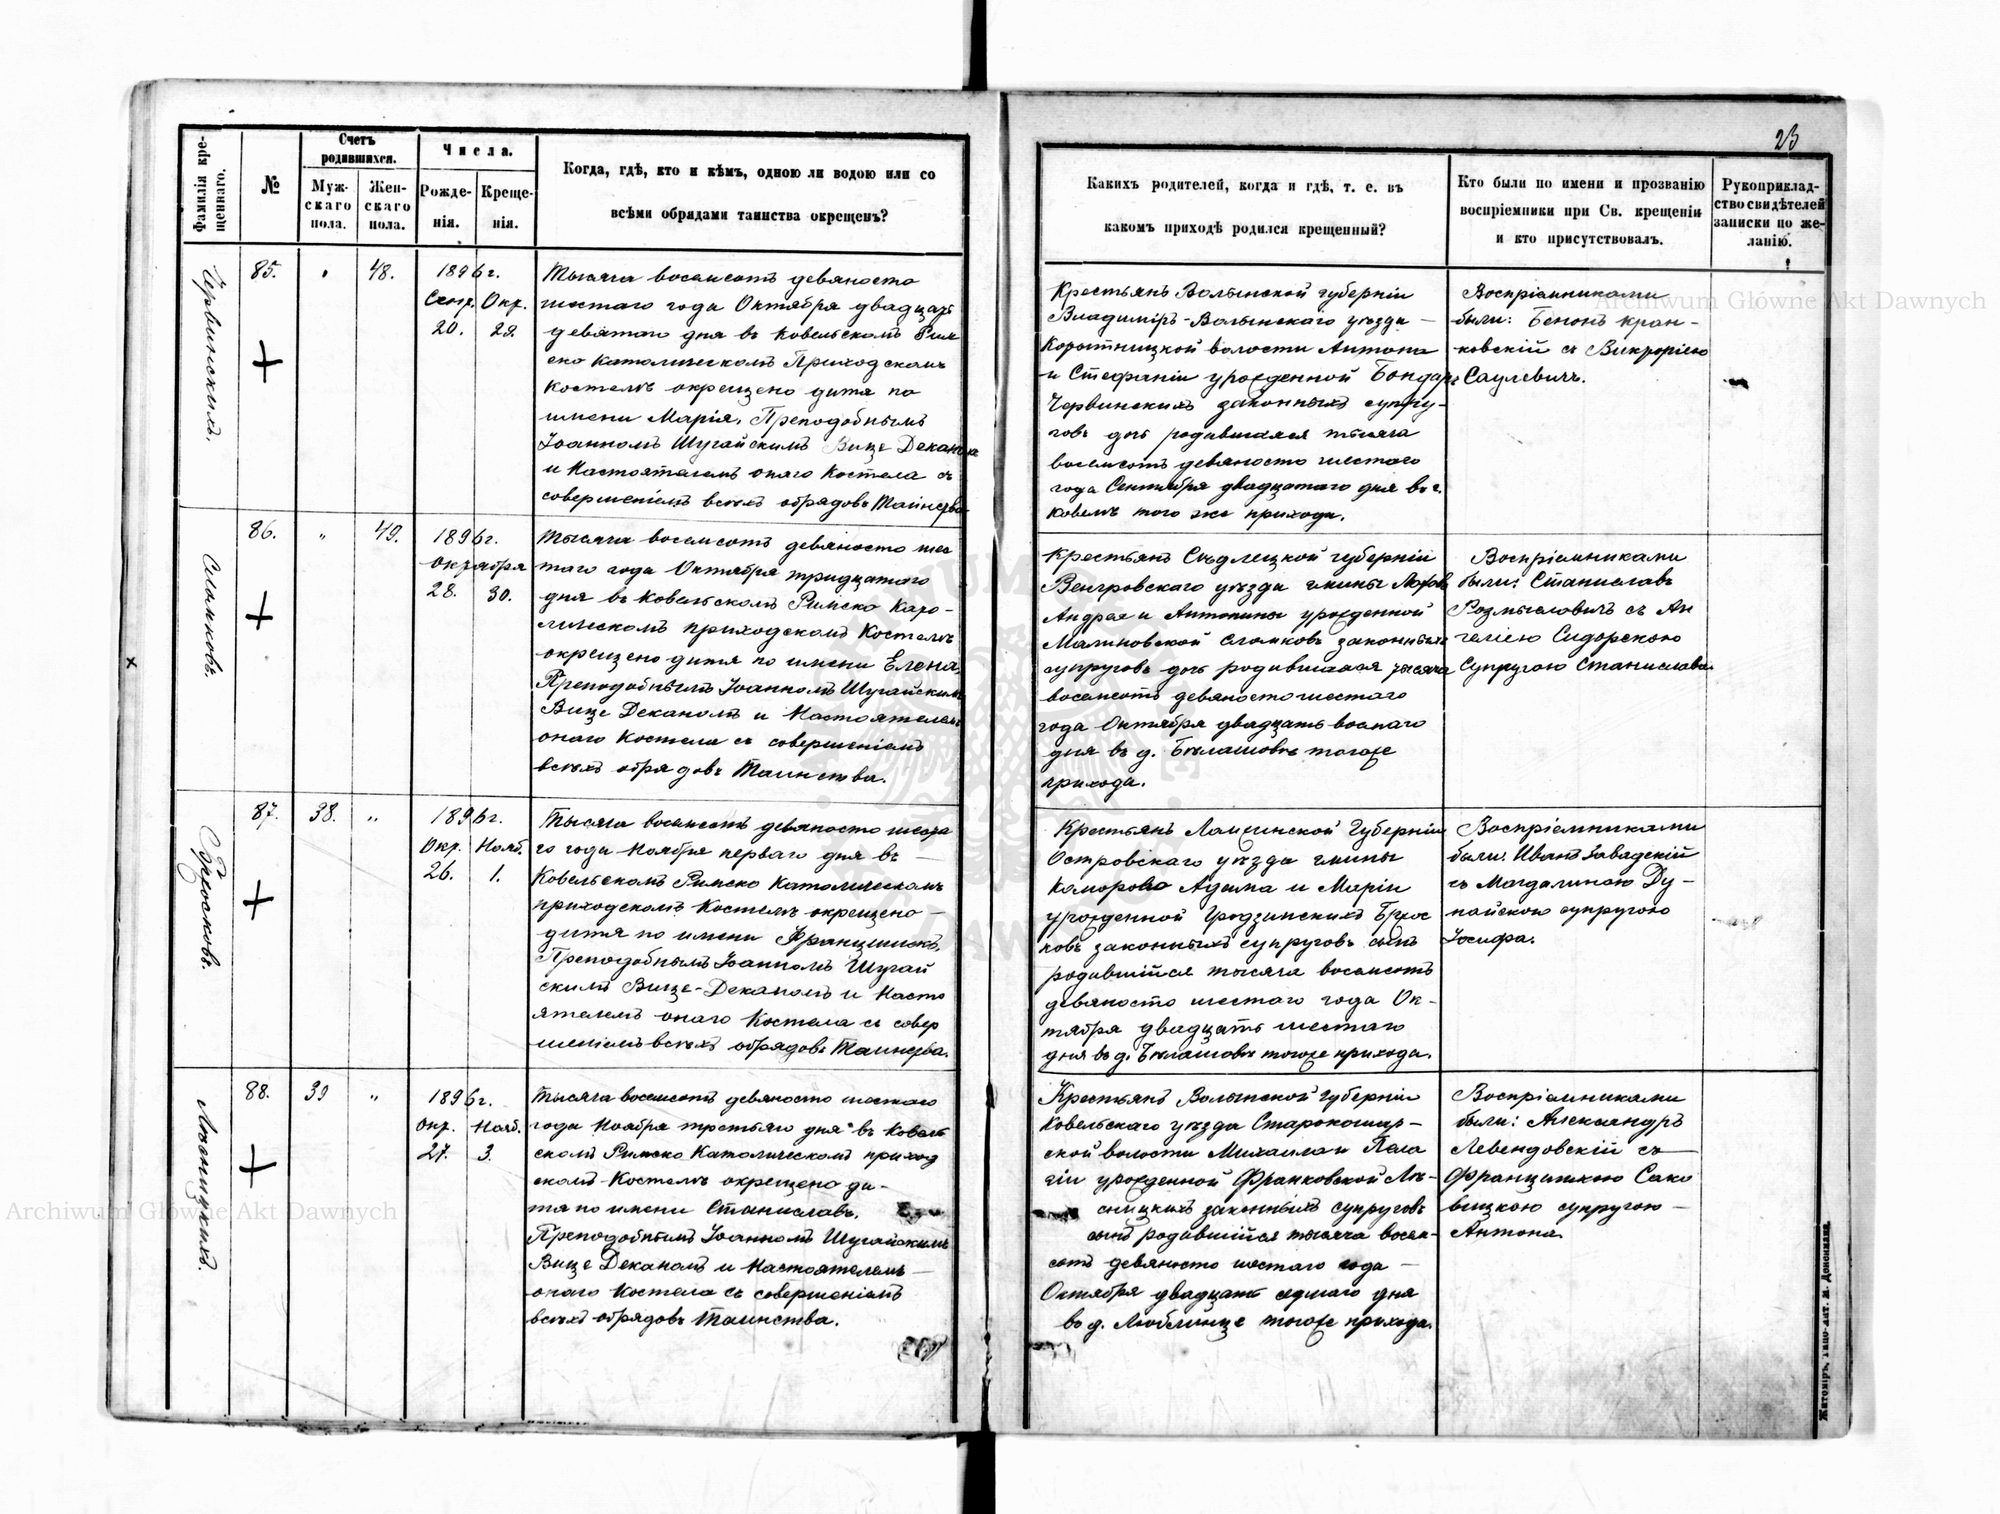 23
Фамилія кре-
щеннаго.
№
Счетъ
родившихся.
Муж-
скаго
пола.
Жен-
скаго
пола.
Числа.
Рожде-
нія.
Креще-
нія.
Когда, гдѣ, кто и кѣмъ, одною ли водою или со
всѣми обрядами таинства окрещенъ?
Какихъ родителей, когда и гдѣ, т. е. въ
какомъ приходѣ родился крещенный?
Кто были по имени и прозванію
воспріемники при Св. крещеніи
и кто присутствовалъ.
Рукоприклад-
ство свидѣтелей
записки по же-
ланію.
Червинскихъ.
85.
48.
1896 г.
Сент. Окт.
20. 29.
Тысяча восемсотъ девяносто
шестаго года Октября двадцать
девятаго дня въ Ковельскомъ Рим
ско Католическомъ Приходскомъ
Костелѣ окрещено дитя по
имени Марія, Преподобнымъ
Іоанномъ Шугайскимъ Вице Деканомъ
и Настоятелемъ онаго Костела съ
совершеніемъ всѣхъ обрядовъ Таинства
Крестьянъ Волынской губерніи
Владиміръ-Волынскаго уѣзда —
Коростницкой волости Антона
и Стефаніи урожденной Бондарь
Червинскихъ законныхъ супру-
говъ дочь родившаяся тысяча
восемсотъ девяносто шестаго
года Сентября двадцатаго дня въ г.
Ковелѣ того же прихода.
Воспріемниками
были: Бенонъ Кран-
ковскій съ Викторіею
Саулевичъ.
Сломковъ.
86.
„
49.
1896 г.
Октября
28. 30.
Тысяча восемсотъ девяносто шес
таго года Октября тридцатаго
дня въ Ковельскомъ Римско Като-
лическомъ приходскомъ Костелѣ
окрещено дитя по имени Елена,
Преподобнымъ Іоанномъ Шугайскимъ
Вице Деканомъ и Настоятелемъ
онаго Костела съ совершеніемъ
всѣхъ обрядовъ Таинства.
Крестьянъ Сѣдлецкой губерніи
Венгровскаго уѣзда гмины Лохов
Андрея и Антонины урожденной
Малиновской Сломковъ законныхъ
супруговъ дочь родившаяся тысяча
восемсотъ девяносто шестаго
года Октября двадцать восмаго
дня въ д. Бѣлашовѣ тогоже
прихода.
Воспріемниками
были: Станиславъ
Розмысловичъ съ Ан
геліею Сидорскою
супругою Станислава.
Брюсковъ.
87.
38.
„
1896 г.
Окт. Нояб.
26. 1.
Тысяча восемсотъ девяносто шеста
го года Ноября перваго дня въ —
Ковельскомъ Римско Католическомъ
приходскомъ Костелѣ окрещено —
дитя по имени Францишекъ,
Преподобнымъ Іоанномъ Шугай
скимъ Вице-Деканомъ и Насто
ятелемъ онаго Костела съ совер
шеніемъ всѣхъ обрядовъ Таинства.
Крестьянъ Ломжинской Губерніи
Островскаго уѣзда гмины
Коморово Адама и Маріи
урожденной Гродзинскихъ Брюс
ковъ законныхъ супруговъ сынъ
родившійся тысяча восемсотъ
девяносто шестаго года Ок-
тября двадцать шестаго
дня въ д. Бѣлашовѣ тогоже прихода.
Воспріемниками
были: Иванъ Завадскій
съ Магдалиною Ду-
найскою супругою
Іосифа.
Лѣсницкихъ.
88.
39
„
1896 г.
Окт. Нояб.
27. 3.
Тысяча восемсотъ девяносто шестаго
года Ноября третьяго дня въ Ковель
скомъ Римско Католическомъ приход
скомъ Костелѣ окрещено ди-
тя по имени Станиславъ,
Преподобнымъ Іоанномъ Шугайскимъ
Вице Деканомъ и Настоятелемъ —
онаго Костела съ совершеніемъ
всѣхъ обрядовъ Таинства.
Крестьянъ Волынской губерніи
Ковельскаго уѣзда Старокошар-
ской волости Михаила и Пела
гіи урожденной Франковской Лѣ-
сницкихъ законныхъ супруговъ
сынъ родившійся тысяча восем-
сотъ девяносто шестаго года —
Октября двадцать седмаго дня
въ д. Люблинце тогоже прихода.
Воспріемниками
были: Александръ
Левендовскій съ —
Францишкою Сако
вицкою супругою —
Антона.
Житоміръ, Типо-лит. М. Дененмана.
Archiwum Główne Akt Dawnych
Archiwum Główne Akt Dawnych